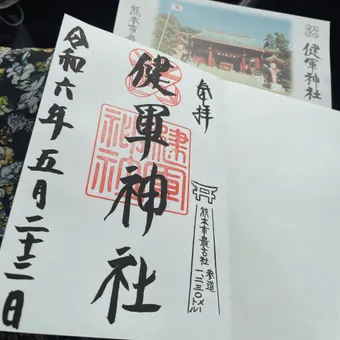 奉拝
健軍神社
令和六年五月二十三日
健軍
神社
熊本市最古社
参道
一二三〇メートル
健軍神社
熊本市